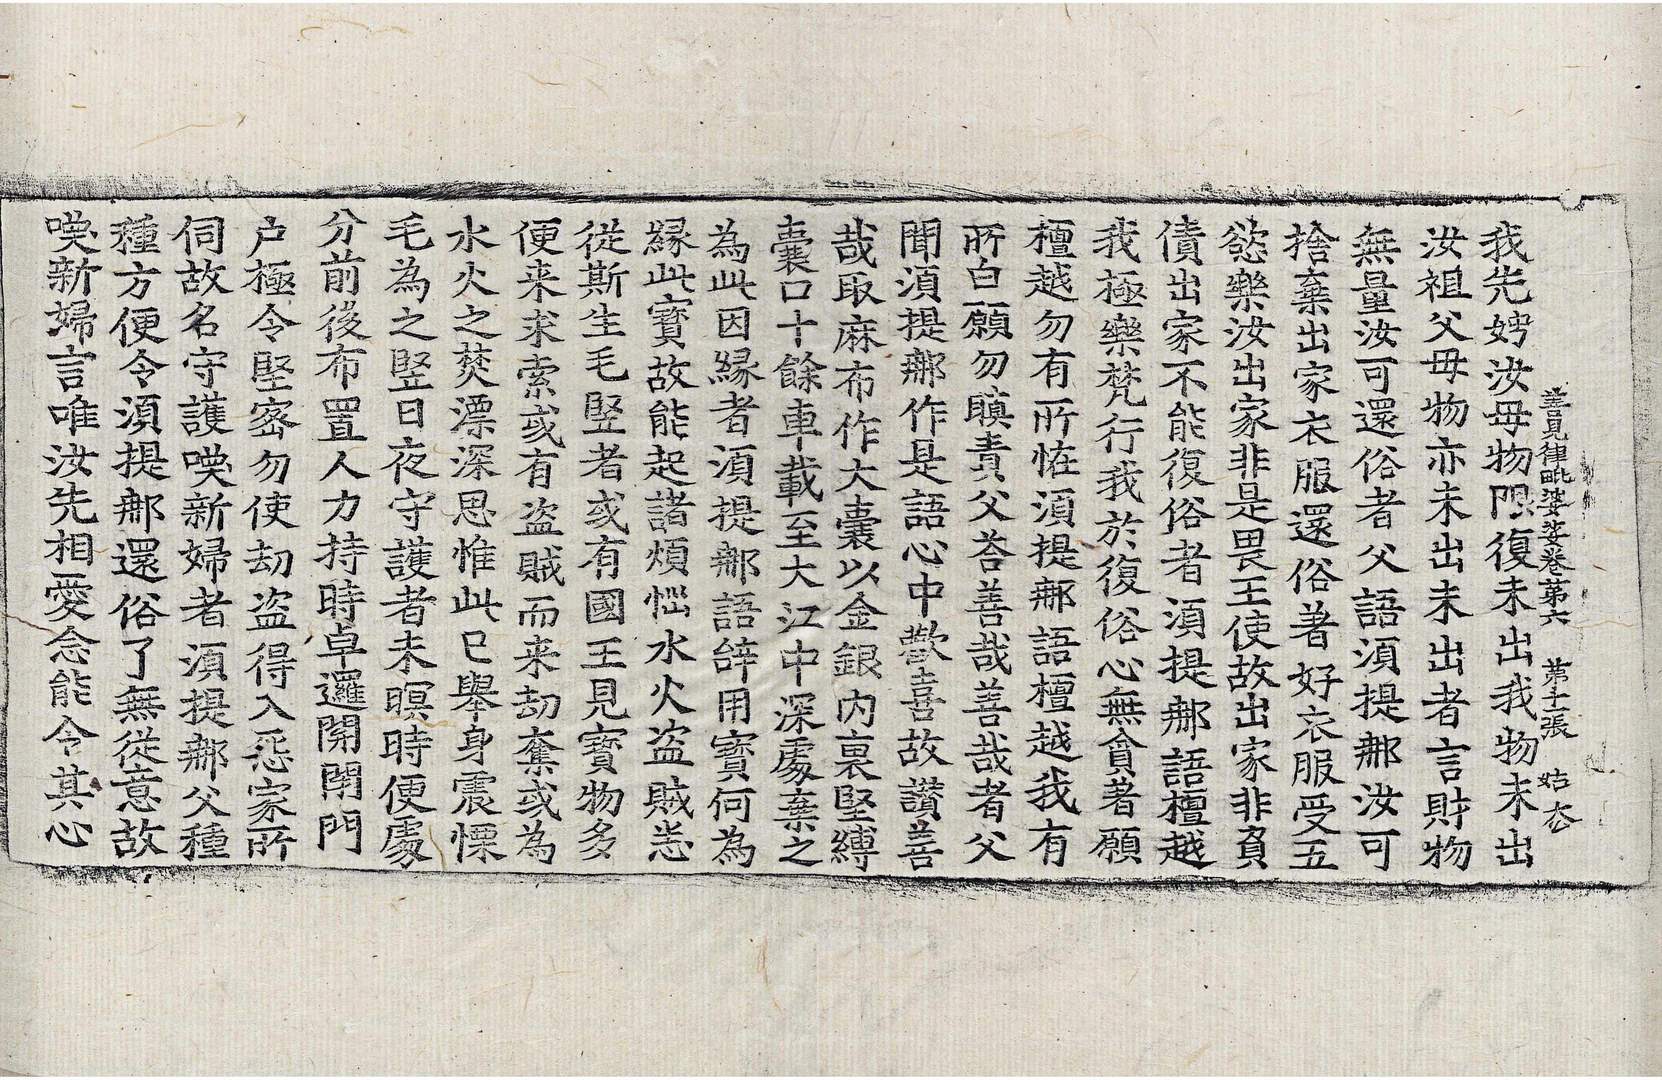 善見律毗婆娑卷第六 第十張 姑 夳
我先娉汝母物限復未出我物未出
汝祖父母物亦未出未出者言財物
無量汝可還俗者父語湏提𨚗汝可
捨棄出家衣服還俗著好衣服受五
慾樂汝出家非是畏王使故出家非負
債出家不能復俗者湏提𨚗語檀越
我極樂梵行我於復俗心無貪著願
檀越勿有所恠湏提𨚗語檀越我有
所白願勿瞋責父荅善哉善哉者父
聞湏提𨚗作是語心中歡喜故讃善
哉取麻布作大囊以金銀内裏堅縛
囊口十餘車載至大江中深處棄之
為此因緣者湏提𨚗語辝用寳何為
緣此寳故能起諸煩惱水火盗賊恙
從斯生毛竪者或有國王見寳物多
便来求索或有盗賊而来劫奪或為
水火之焚漂深思惟此已舉身震慄
毛為之竪日夜守護者未暝時便處
分前後布置人力持時卓邏開閇門
户極令堅密勿使劫盗得入惡家所
伺故名守護喚新婦者湏提𨚗父種
種方便令湏提𨚗還俗了無從意故
喚新婦言唯汝先相愛念能令其心